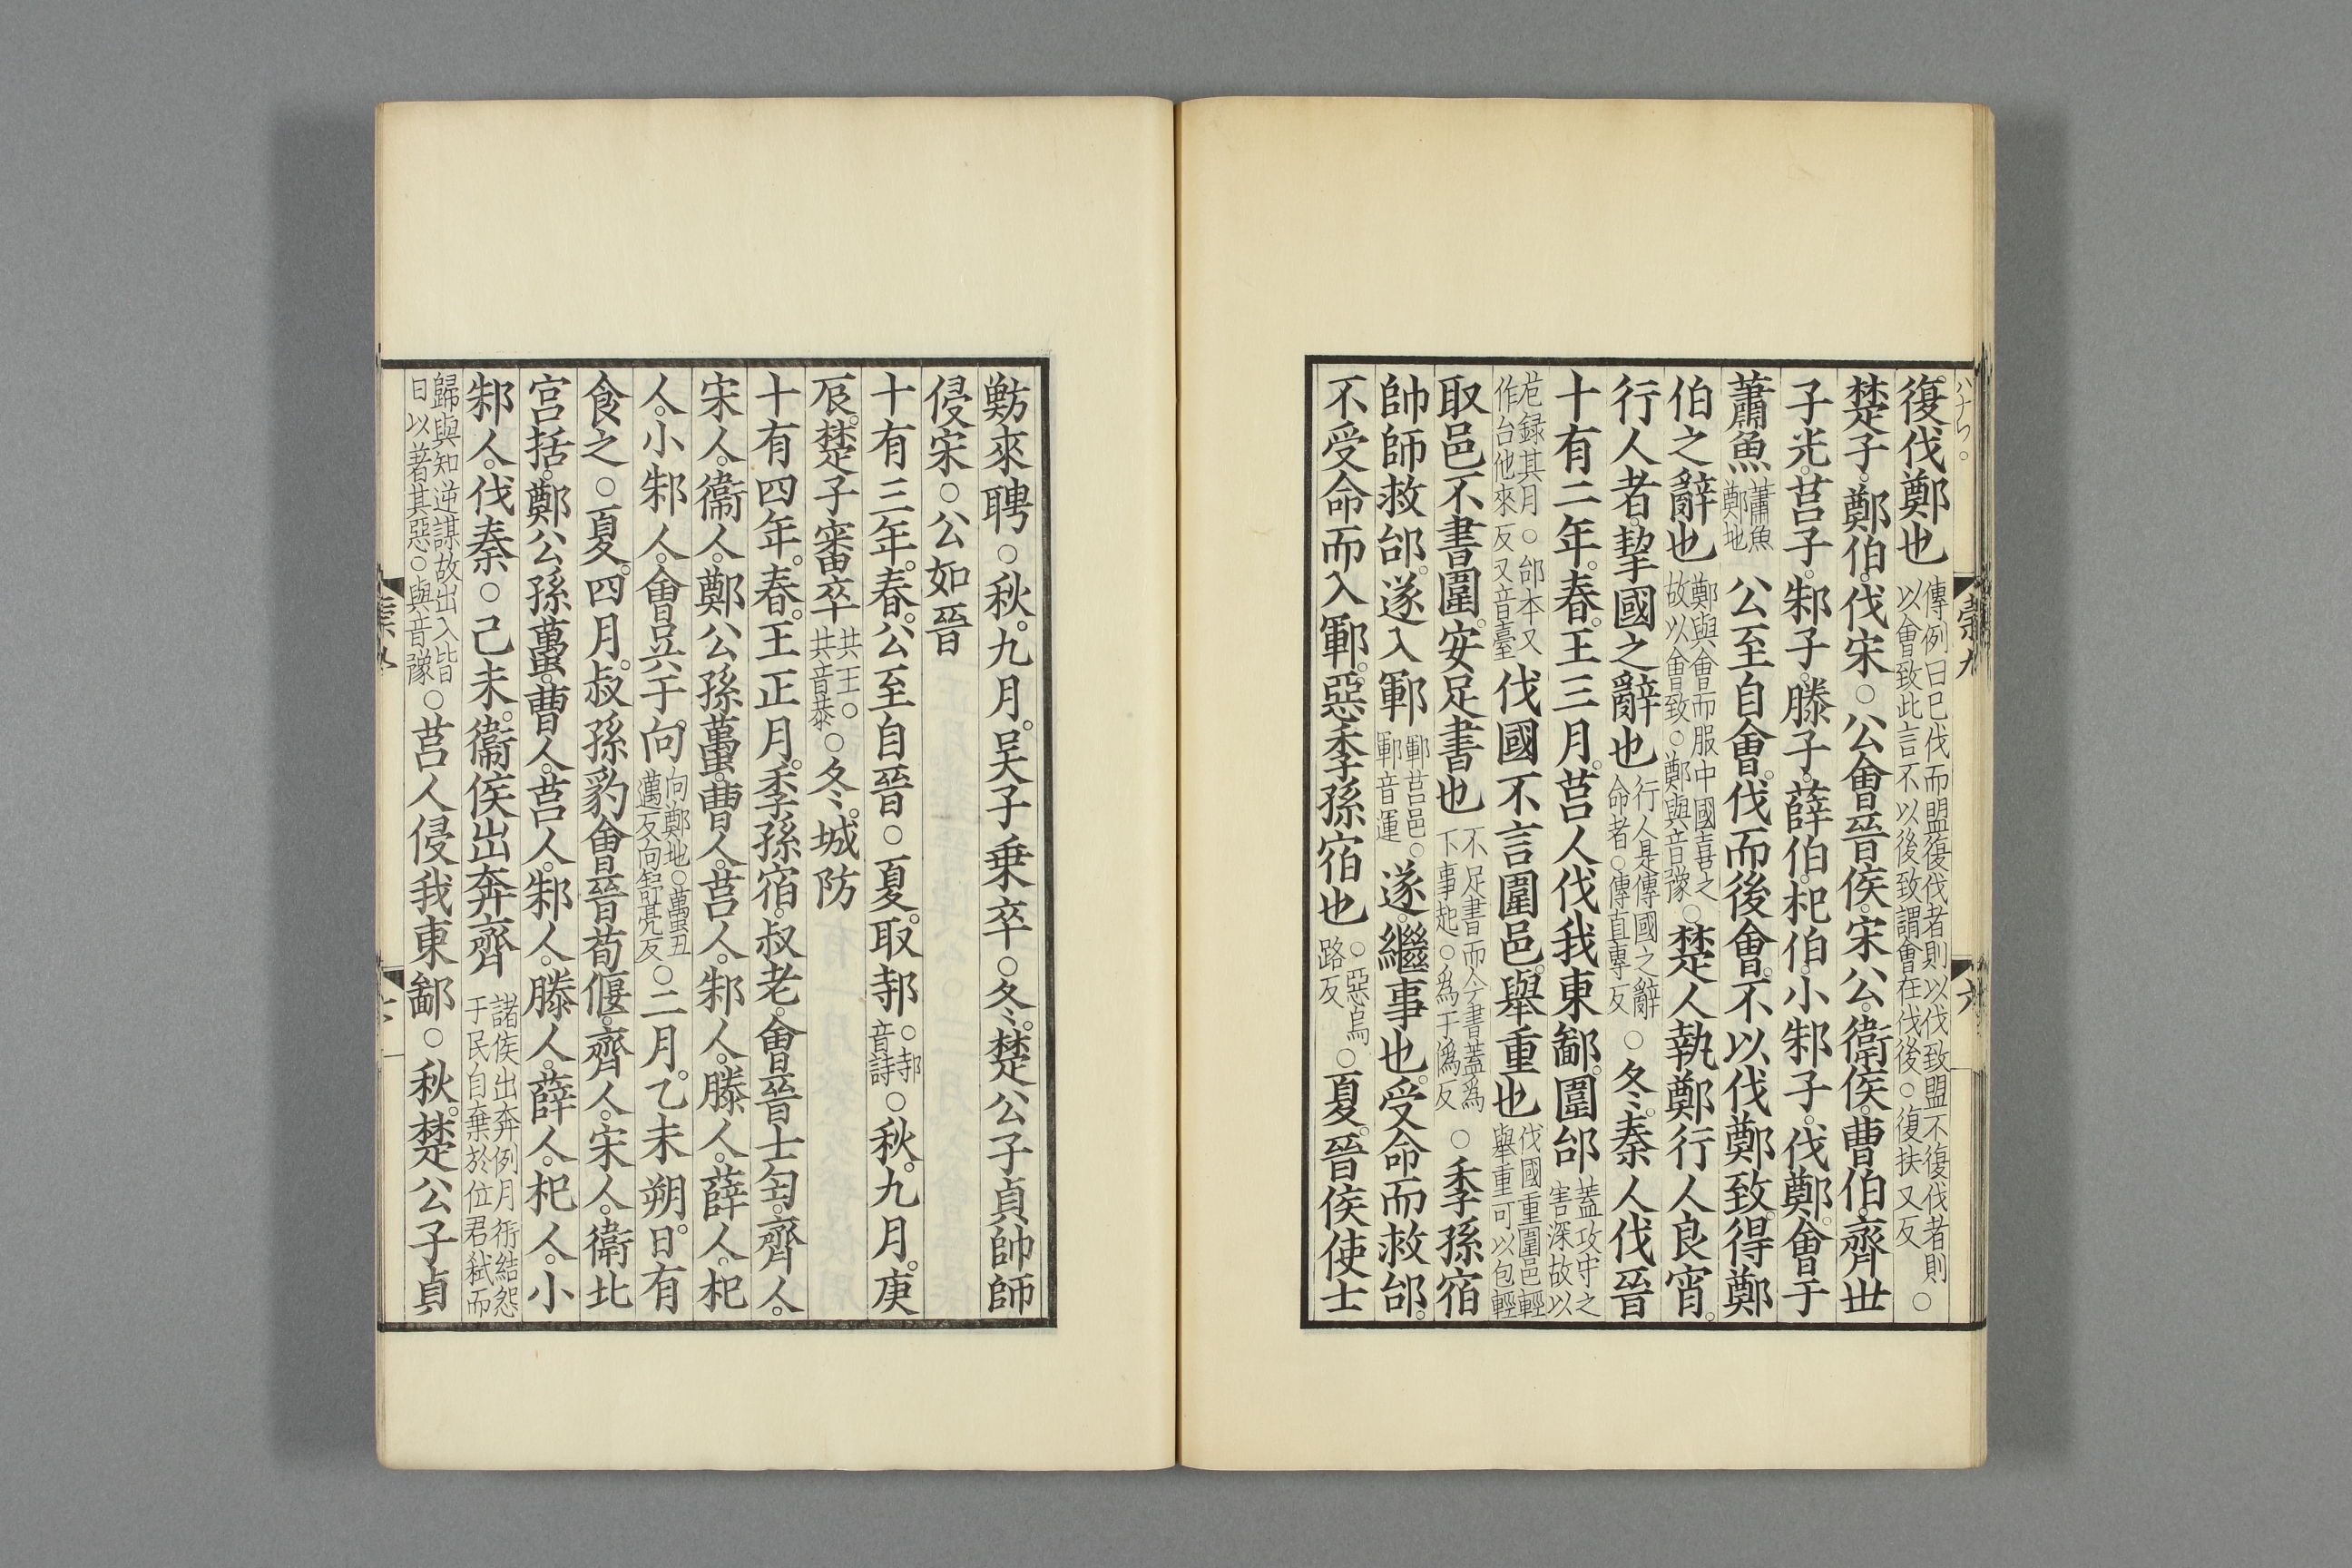 復伐鄭也傳例曰已伐而盟復伐者則以伐致盟不復伐者則以會致此言不以後致謂會在伐後○復扶又反○
楚子鄭伯伐宋○公會晉侯宋公衛侯曹伯齊世
子光莒子邾子滕子薛伯杞伯小邾子伐鄭會于
蕭魚蕭魚鄭地公至自會伐而後會不以伐鄭致得鄭
伯之辭也鄭與會而服中國喜之故以會致○鄭與音豫○楚人執鄭行人良宵
行人者挈國之辭也行人是傳國之辭命者○傳直專反○冬秦人伐晉
十有二年春王三月莒人伐我東鄙圍邰蓋攻守之害深故以
危録其月○邰本又作台他來反又音臺伐國不言圍邑舉重也伐國重圍邑輕舉重可以包輕
取邑不書圍安足書也不足書而今書蓋為下事起○為于偽反○季孫宿
帥師救邰遂入鄆鄆莒邑○鄆音運遂繼事也受命而救邰
不受命而入鄆惡季孫宿也○惡烏路反○夏晉侯使士
魴來聘○秋九月吴子乗卒○冬楚公子貞帥師
侵宋○公如晉
十有三年春公至自晉○夏取邿○邿音詩○秋九月庚
辰楚子審卒共王○共音恭○冬城防
十有四年春王正月季孫宿叔老會晉士匄齊人
宋人衞人鄭公孫蠆曹人莒人邾人滕人薛人杞
人小邾人會吳于向向鄭地○蠆丑邁反向舒亮反○二月乙未朔日有
食之○夏四月叔孫豹會晉荀偃齊人宋人衛北
宫括鄭公孫蠆曹人莒人邾人滕人薛人杞人小
邾人伐秦○己未衞侯出奔齊諸侯出奔例月衎結怨于民自棄於位君弑而
歸與知逆謀故出入皆日以著其惡○與音豫○莒人侵我東鄙○秋楚公子貞